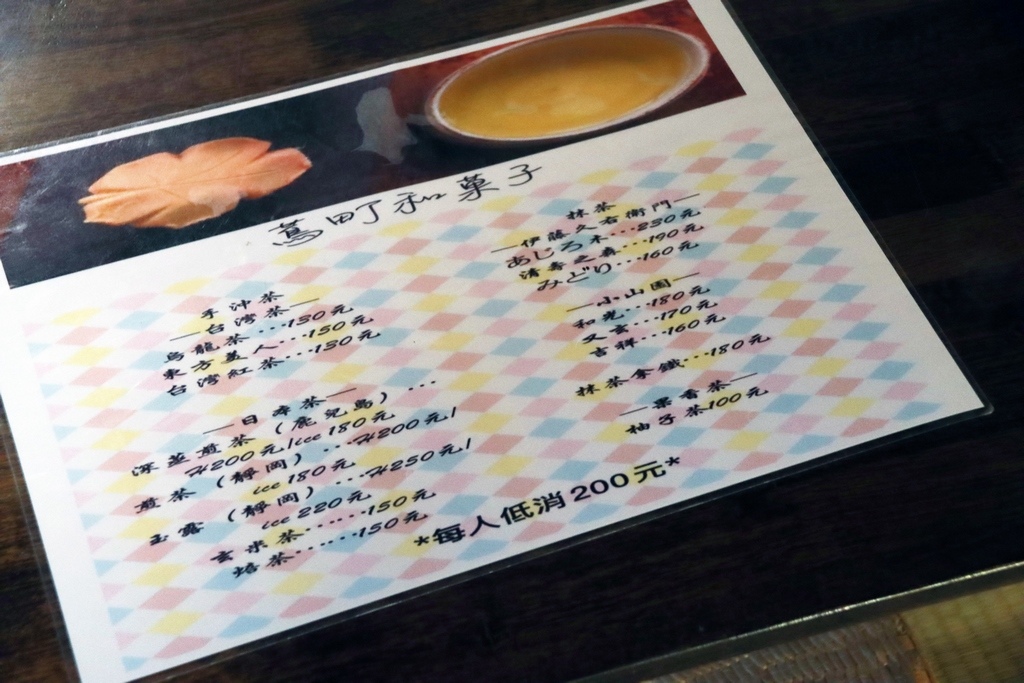 蔦町和菓子
手沖茶
—台灣茶—
烏龍茶...130元
東方美人...150元
台灣紅茶...130元
—日本茶—
深蒸煎茶（鹿兒島）...
H200元/ice 180元
煎茶（靜岡）...H200元/
ice 180元
玉露（靜岡）...H250元/
ice 220元
玄米茶......150元
焙茶......150元
抹茶
—伊藤久右衛門—
あじろ木...230元
清香之森...190元
みどり...160元
—小山園—
和光...180元
又玄...170元
吉祥...160元
抹茶拿鐵...180元
—果香茶—
柚子茶100元
*每人低消200元*